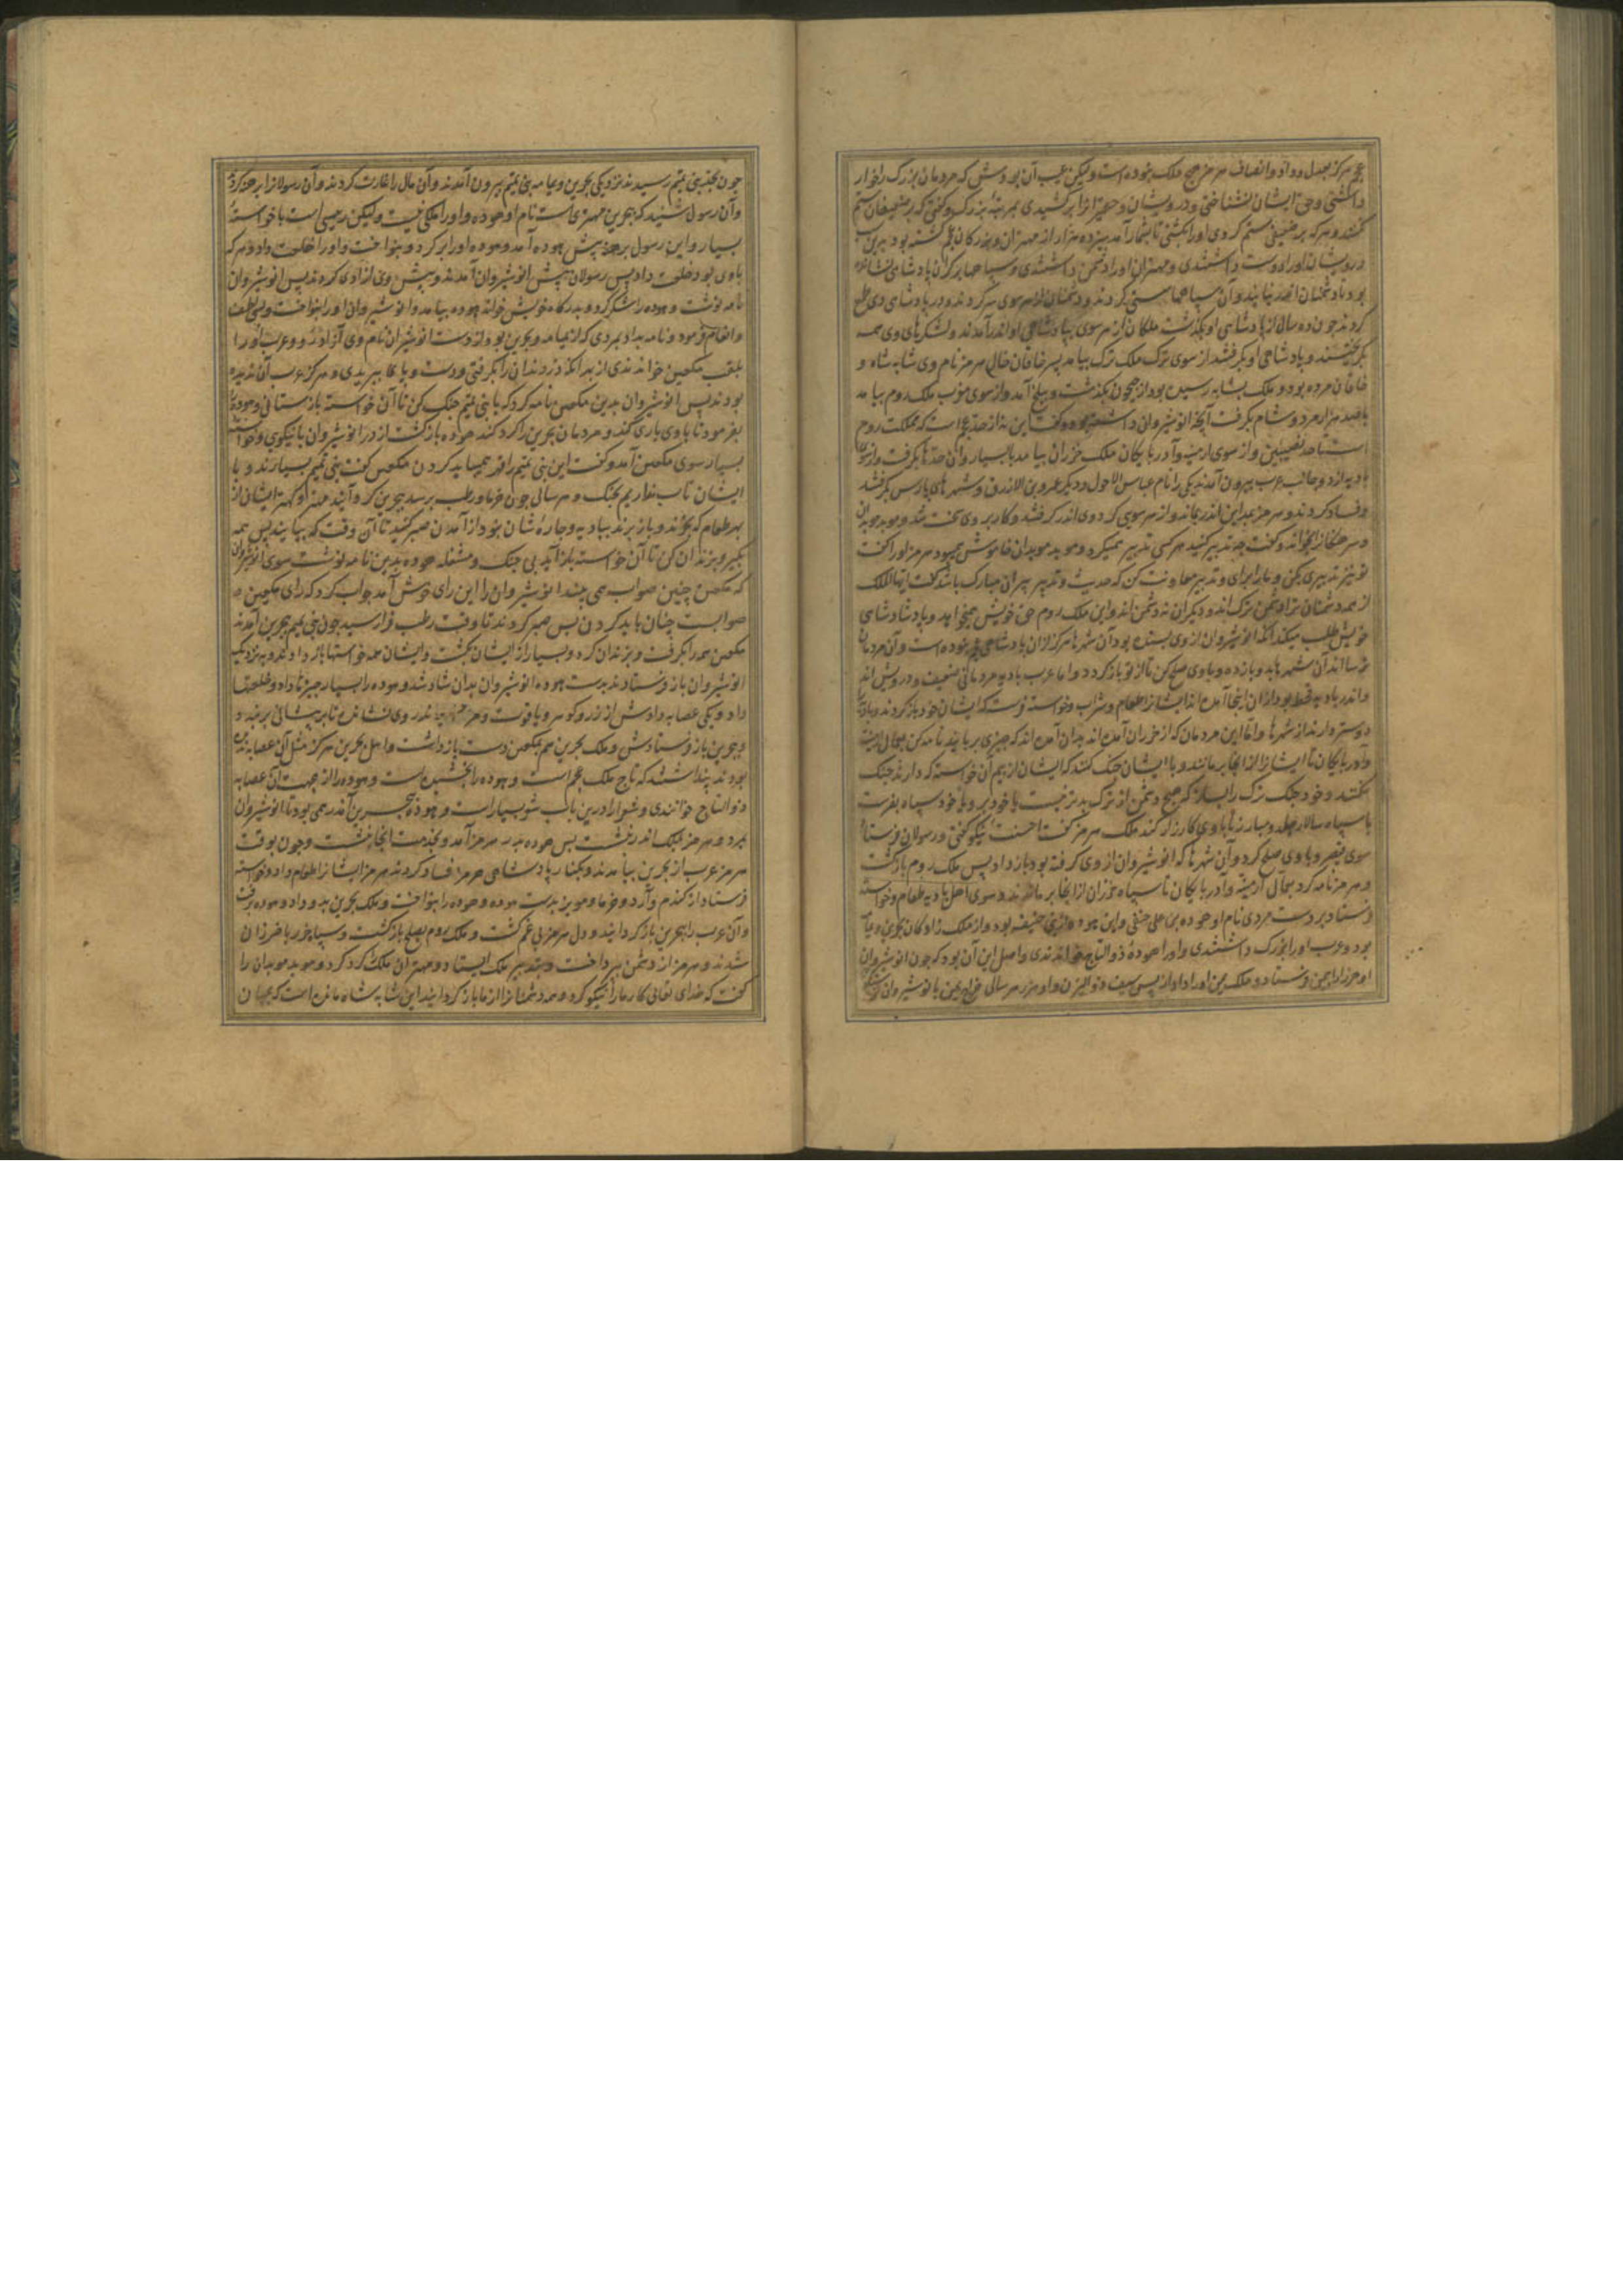 عجم هرکز بعدل و داد و انصاف هرمز هیچ ملک نبوده است ولیکن عیب آن بودش که مردمان بزرک را خوار
داشتی و حق ایشان نشناختی و درویشان و حقیرانرا برکشیدی بمرتبه بزرک و کفتی که بر ضعیفان ستم
کنند و هرکه بر ضعیفی ستم کردی او را بکشتی تا بشمار آمد سیزده هزار از مهتران و بزرکان عجم کشته بود بدین سبب
درویشان او را دوست داشتندی و مهتران او را دشمن داشتندی و سپاهها بر کران پادشاهی نشانده
بود تا دشمنان اندر نیایند و آن سپاهها سستی کردند و دشمنان از هر سوی سر کردند و در پادشاهی وی طمع
کردند چون ده سال از پادشاهی او بکذشت ملکان از هر سوی بپادشاهی او اندر آمدند و لشکرهای وی همه
بکریختند و پادشاهی او بکرفتند از سوی ترک ملک ترک بیامد پسر خاقان خال هرمز نام وی شابه شاه و
خاقان مرده بود و ملک بشابه رسیده بود از جیحون بکذشت و ببلخ آمد و از سوی مغرب ملک روم بیامد
با صد هزار مرد و شام بکرفت آنچه انوشیروان داشته بود و کفت این نه از حد عجم است که مملکت روم
است تا حد نصیبین و از سوی ارمنیه و آذربایکان ملک خزران بیامد با بسیار و آن حدها بکرفت و از سوی
بادیه از دو جانب عرب بیرون آمدند یکی را نام عباس الاحول و دیکر عمرو بن الازرق و شهرهای پارس بکرفتند
و فساد کردند و هرمز بمداین اندر بماند و از هر سوی کرد وی اندر کرفتند و کار بر وی سخت شد و موبد موبدان
و سرهنکانرا بخواند و کفت چه تدبیر کنید هر کسی تدبیر همیکرد و موبد موبدان خاموش همی بود هرمز او را کفت
تو نیز تدبیری بکن و ما را برای و تدبیر معاونت کن که حدیث و تدبیر پیران مبارک باشد کفت ایها الملک
از همه دشمنان ترا دشمن ترک اند و دیکران نه دشمن اند و این ملک روم حق خویش همیخواهد و پادشاهی
خویش طلب میکند آنکه انوشیروان از وی بستده بود آن شهرها هرکز از آن پادشاهی عجم نبوده است و آن مردمان
ترسا اند آن شهرها بدو باز ده و با وی صلح کن تا از تو باز کردد و اما عرب بادیه مردمانی ضعیف و درویش اند
و اندر بادیه قحط بود از آن اینجا آمده اند ایشانرا طعام و شراب و خواسته فرست که ایشان خود باز کردند و بادیه
دوستر دارند از شهرها و اما این مردمان که از خزران آمده اند بدان آمده اند که چیزی بربایند نامه کن بعمال ارمنیه
و آذربایکان تا ایشانرا از آنجا برمانند و با ایشان جنک کنند که ایشان از بیم آن خواسته که دارند جنک
نکنند و خود جنک ترک را بساز که هیچ دشمن از ترک بدتر نیست یا خود برو یا خود سپاه بفرست
با سپاه سالار جلد و مبارز تا با وی کارزار کند ملک هرمز کفت احسنت نیکو کفتی و رسولان فرستاد
سوی قیصر و با وی صلح کرد و آن شهرها که انوشیروان از وی کرفته بود باز داد پس ملک روم بازکشت
و هرمز نامه کرد بعمال ارمنیه و آذربایکان تا سپاه خزران از آنجا برماندند و سوی اهل بادیه طعام و خواسته
فرستاد بر دست مردی نام او هوده بن علی حنفی و این هوده از بنی حنیفه بود و از ملک زادکان بحرین و یمامه
بود و عرب او را بزرک داشتندی و او را هوده ذوالتاج خواندندی و اصل این آن بود که چون انوشیروان
او مرزرا بیمن فرستاد و ملک یمن او را داد از پس سیف ذوالیزن و او هر سالی خراج یمن با نوشیروان
چون بحد بنی تمیم رسیدند نزدیکی بحرین و یمامه بنی تمیم بیرون آمدند و آن مال را غارت کردند و آن رسولانرا برهنه کردند
و آن رسول شنید که بحرین مهتری است نام او هوده و او را ملکی نیست ولیکن رئیسی است با خواسته
بسیار و این رسول برهنه پیش هوده آمد و هوده او را بر کرد و بنواخت و او را خلعت داد و هرکه
با وی بود خلعت داد پس رسولان پیش انوشیروان آمدند و پیش وی آزادی کردند پس انوشیروان
نامه نوشت و هوده را شکر کرد و بدرکاه خویش خواند هوده بیامد و انوشیروان او را بنواخت و بسی لطف
و انعام فرمود و نامه بداد بمردی که از یمامه و بحرین بود از دست انوشیروان نام وی آزاد بود و عرب او را
بلقب مکعبر خواندندی از بهر آنکه دزدان را بکرفتی و دست و پای ببریدی و هرکز عرب آن ندیده
بودند پس انوشیروان بدین مکعبر نامه کرد که با بنی تمیم جنک کن تا آن خواسته باز ستانی و هوده را
بفرمود تا با وی یاری کند و مردمان بحرین را کرد کند هوده بازکشت از در انوشیروان با نیکویی و خواسته
بسیار سوی مکعبر آمد و کفت این بنی تمیم را قهر همی باید کردن مکعبر کفت بنی تمیم بسیارند و با
ایشان تاب نداریم بجنک و هر سالی چون خرما و رطب برسد ببحرین کرد آیند مهتر و کهتر ایشان از
بهر طعام که بخورند و باز برند ببادیه و چاره شان نبود از آمدن صبر کنید تا آن وقت که بیایند پس همه
بکیر و بزندان کن تا آن خواسته باز آید بی جنک و مشغله هوده بدین نامه نوشت سوی انوشیروان
که مکعبر چنین صواب همی بیند انوشیروان را این رای خوش آمد جواب کرد که رای مکعبر
صوابست چنان باید کردن پس صبر کردند تا وقت رطب فراز رسید چون بنی تمیم ببحرین آمدند
مکعبر همه را بکرفت و بزندان کرد و بسیار از ایشان بکشت و ایشان همه خواستها باز دادند و بنزدیک
انوشیروان باز فرستادند بدست هوده انوشیروان بدان شاد شد و هوده را بسیار چیزها داد و خلعتها
داد و یکی عصابه دادش از زر و کوهر و یاقوت و اندر وی نشانده تا بر پیشانی بر بندد و
ببحرین باز فرستادش و ملک بحرین هم بمکعبر دست باز داشت و اهل بحرین هرکز مثل آن عصابه ندیده
بودند پنداشتند که تاج ملک عجم است و هوده را بخشیده است و هوده را از جهت آن عصابه
ذو التاج خواندندی و شعرا را درین باب شعر بسیارست و هوده ببحرین اندر همی بود تا انوشیروان
بمرد و هرمز بملک اندر نشست پس هوده بدر هرمز آمد و بخدمت آنجا بنشست و چون بوقت
هرمز عرب از بحرین بیامدند و بکنار پادشاهی هرمز فساد کردند هرمز ایشانرا طعام داد و خواسته
فرستاد از کندم و آرد و خرما و مویز بدست هوده و هوده را بنواخت و ملک بحرین بدو داد و هوده برفت
و آن عرب را ببحرین باز کردانید و دل هرمز بی غم کشت و ملک روم بصلح بازکشت و سپاه خزر با خزران
شدند و هرمز از دشمن بپرداخت و بتدبیر ملک ایستاد و مهتران ملک را کرد کرد و موبد موبدان را
کفت که خدای تعالی کار ما را نیکو کرد و همه دشمنانرا از ما باز کردانید این شابه شاه مانده است که بمیان